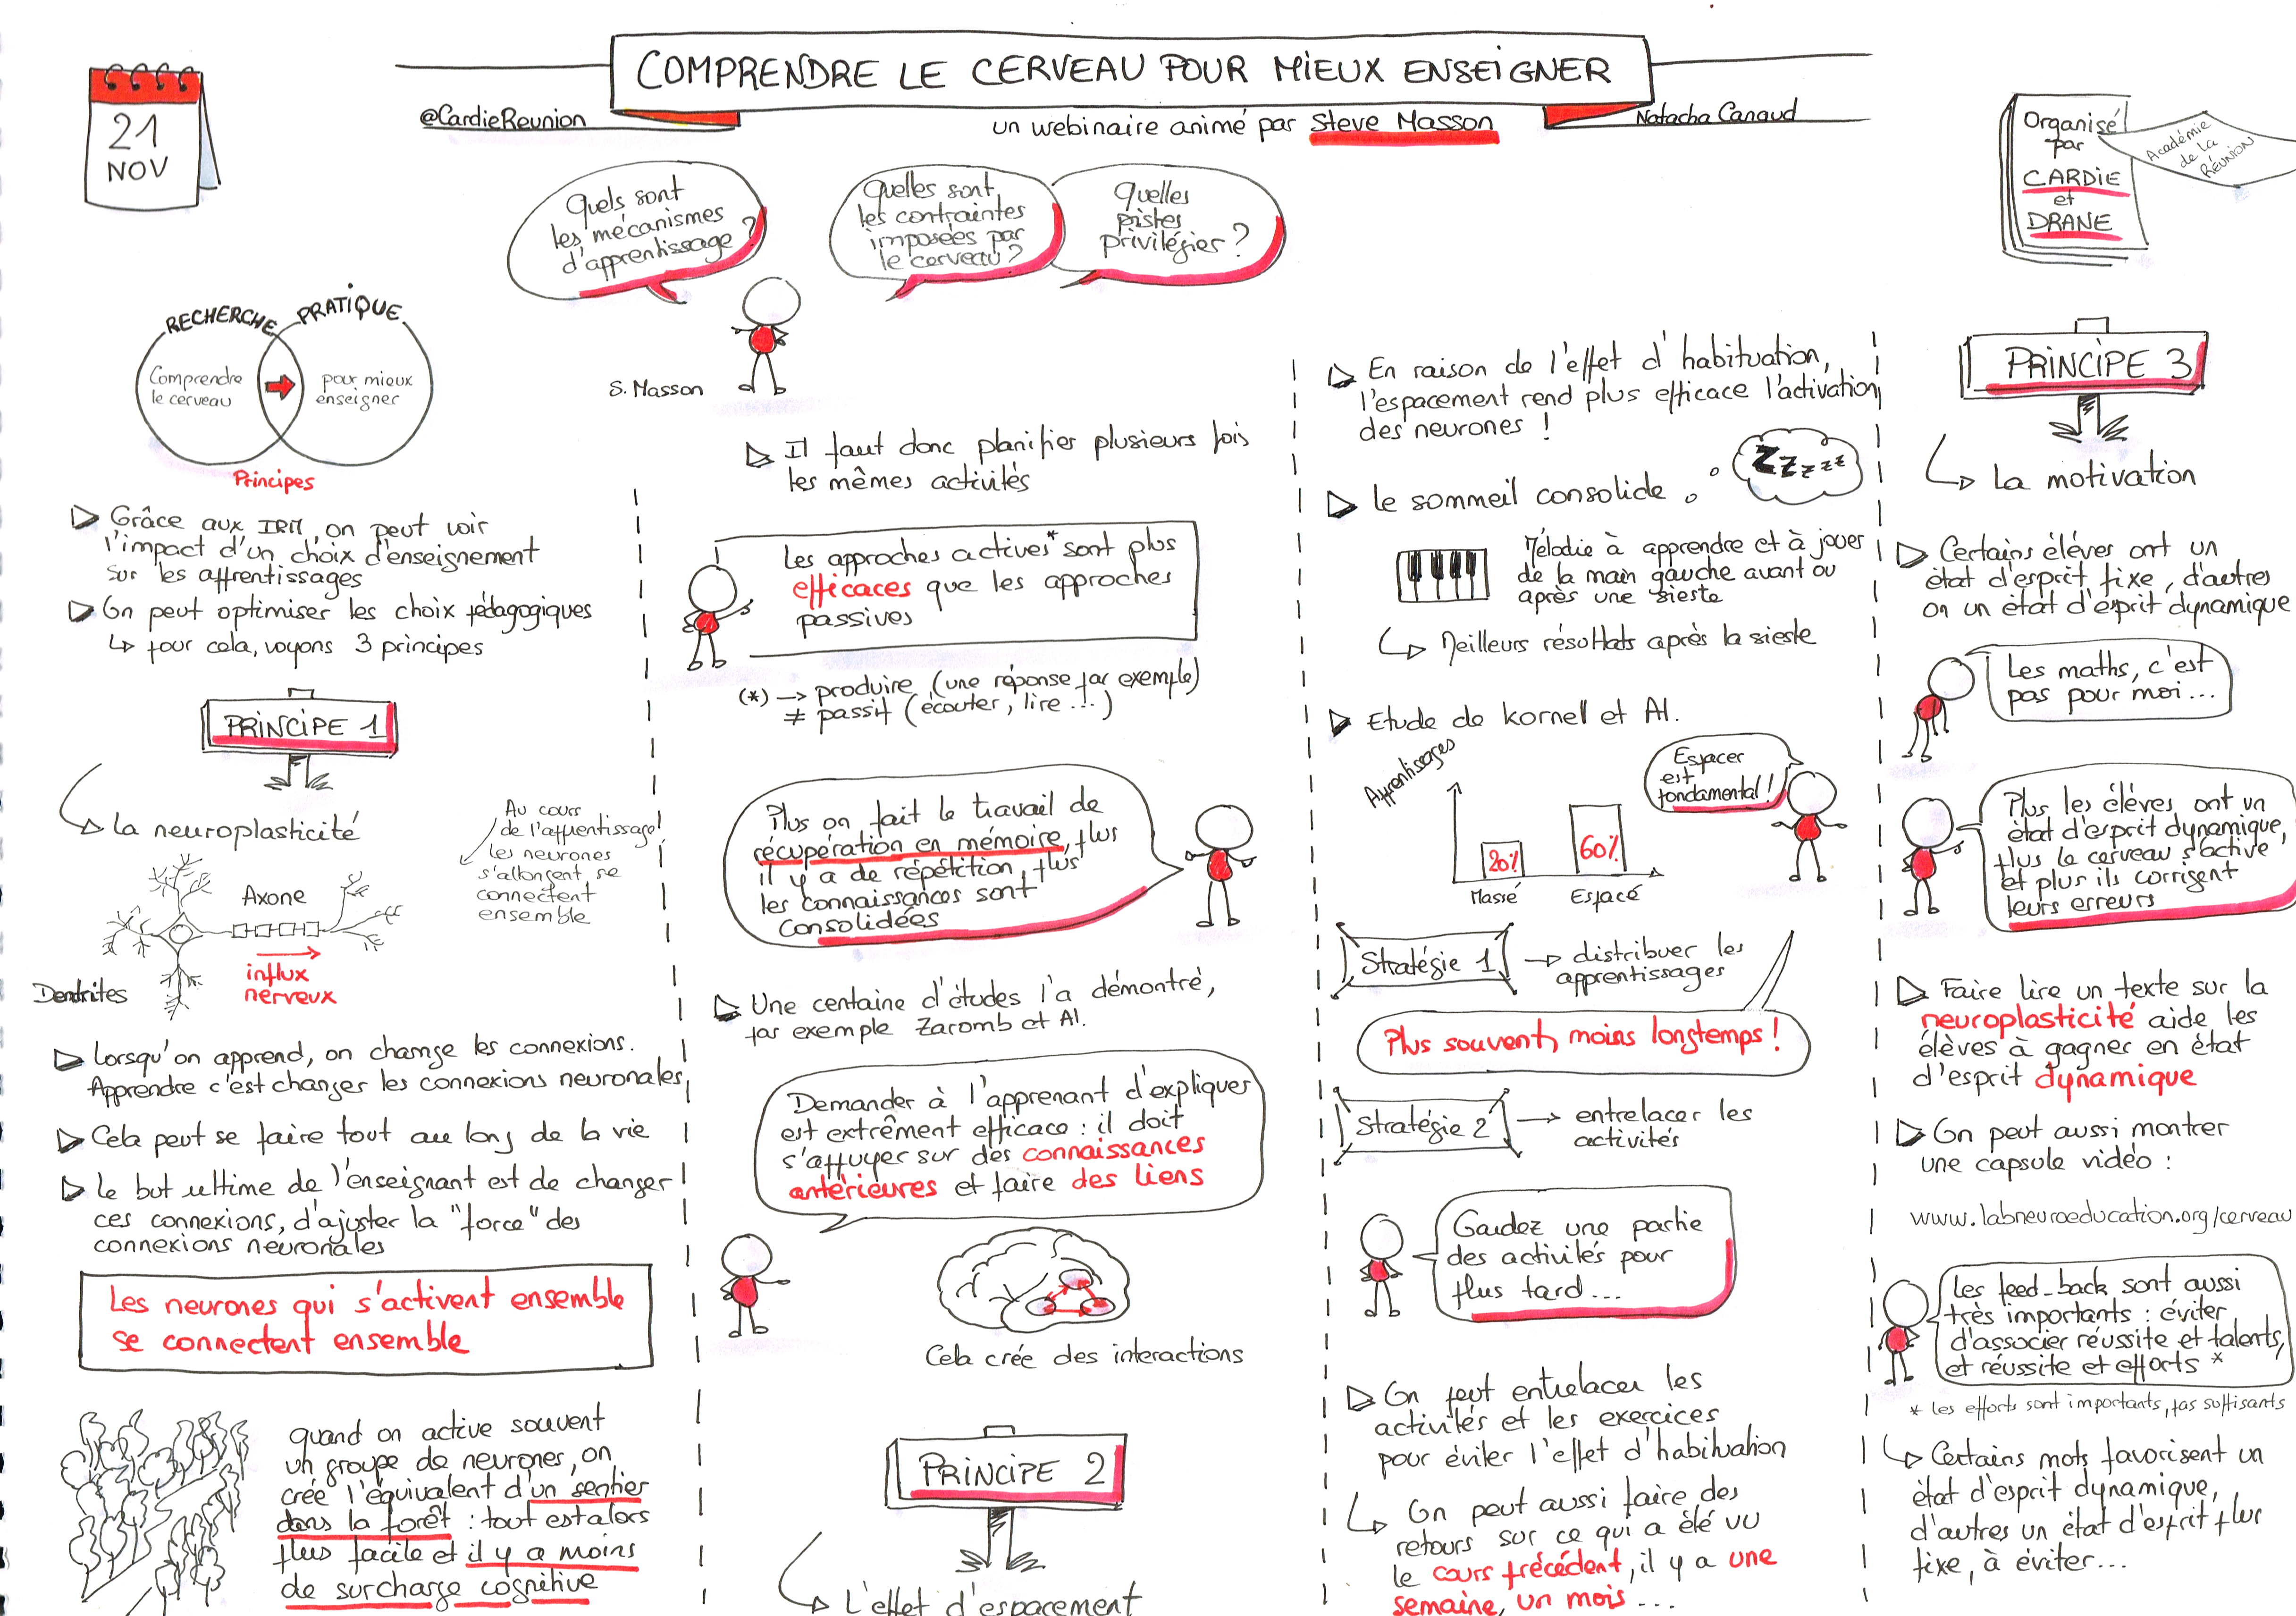 21
NOV
COMPRENDRE LE CERVEAU POUR MIEUX ENSEIGNER
@CardieReunion
un webinaire animé par Steve Masson
Natacha Canaud
Organisé
par
CARDIE
et
DRANE
Académie
de la
RÉUNION
Quels sont
les mécanismes
d'apprentissage ?
Quelles sont
les contraintes
imposées par
le cerveau ?
Quelles
pistes
privilégier ?
S. Masson
RECHERCHE
PRATIQUE
Comprendre
le cerveau
pour mieux
enseigner
Principes
Grâce aux IRM, on peut voir
l'impact d'un choix d'enseignement
sur les apprentissages
On peut optimiser les choix pédagogiques
pour cela, voyons 3 principes
PRINCIPE 1
la neuroplasticité
Au cours
de l'apprentissage
les neurones
s'allongent se
connectent
ensemble
Axone
influx
nerveux
Dendrites
Lorsqu'on apprend, on change les connexions.
Apprendre c'est changer les connexions neuronales
Cela peut se faire tout au long de la vie
Le but ultime de l'enseignant est de changer
ces connexions, d'ajuster la "force" des
connexions neuronales
Les neurones qui s'activent ensemble
se connectent ensemble
quand on active souvent
un groupe de neurones, on
crée l'équivalent d'un sentier
dans la forêt : tout est alors
plus facile et il y a moins
de surcharge cognitive
Il faut donc planifier plusieurs fois
les mêmes activités
Les approches actives* sont plus
efficaces que les approches
passives
(*) → produire (une réponse par exemple)
≠ passif (écouter, lire...)
Plus on fait le travail de
récupération en mémoire, plus
il y a de répétition, plus
les connaissances sont
consolidées
Une centaine d'études l'a démontré,
par exemple Zaromb et Al.
Demander à l'apprenant d'expliquer
est extrêment efficace : il doit
s'appuyer sur des connaissances
antérieures et faire des liens
Cela crée des interactions
PRINCIPE 2
L'effet d'espacement
En raison de l'effet d'habituation,
l'espacement rend plus efficace l'activation
des neurones !
le sommeil consolide
Zzzzz
Mélodie à apprendre et à jouer
de la main gauche avant ou
après une sieste
Meilleurs résultats après la sieste
Etude de Kornel et Al.
Apprentissages
20%
60%
Massé
Espacé
Espacer
est
fondamental !
Stratégie 1 → distribuer les
apprentissages
Plus souvent, moins longtemps !
Stratégie 2 → entrelacer les
activités
Gardez une partie
des activités pour
plus tard...
On peut entrelacer les
activités et les exercices
pour éviter l'effet d'habituation
On peut aussi faire des
retours sur ce qui a été vu
le cours précédent, il y a une
semaine, un mois...
PRINCIPE 3
la motivation
Certains élèves ont un
état d'esprit fixe, d'autres
on un état d'esprit dynamique
Les maths, c'est
pas pour moi...
Plus les élèves ont un
état d'esprit dynamique,
plus le cerveau s'active
et plus ils corrigent
leurs erreurs
Faire lire un texte sur la
neuroplasticité aide les
élèves à gagner en état
d'esprit dynamique
On peut aussi montrer
une capsule vidéo :
www.labneuroeducation.org/cerveau
Les feed-back sont aussi
très importants : éviter
d'associer réussite et talents,
et réussite et efforts *
* les efforts sont importants, pas suffisants
Certains mots favorisent un
état d'esprit dynamique,
d'autres un état d'esprit plus
fixe, à éviter...